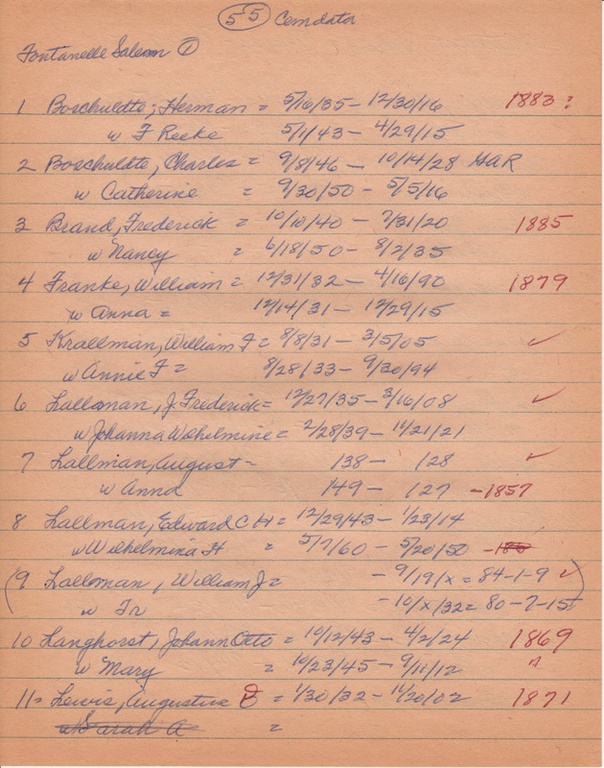 55 Cemdata
Fontanelle Salem ①
1 Boschuldte, Herman = 5/16/35 - 12/30/16 1883?
w F Reeke 5/1/43 - 4/29/15
2 Boschuldte, Charles = 9/8/46 - 10/14/28 HAR
w Catherine = 9/30/50 - 5/5/16
3 Brand, Frederick = 10/10/40 - 7/31/20 1885
w Nancy = 6/18/50 - 8/2/35
4 Franke, William = 12/31/32 - 4/16/90 1879
w Anna = 12/14/31 - 12/29/15
5 Krallman, William F = 8/8/31 - 3/5/05 ✓
w Annie F = 8/28/33 - 9/30/94
6 Lallman, J. Frederick = 12/27/35 - 3/16/08 ✓
w Johanna Wohelmine = 2/28/39 - 11/21/21
7 Lallman, August - 138 - 128 ✓
w Anna 149 - 127 - 1857
8 Lallman, Edward C H = 12/29/43 - 1/23/14
w Wilhelmina H = 5/7/60 - 5/20/50 -
(9 Lallman, William J = - 9/19/x = 84-1-9 ✓)
w Fr - 10/x/32 = 80-7-15
10 Langhorst, Johann Otto = 10/12/43 - 4/2/24 1869
w Mary = 10/23/45 - 9/11/12 "
11 = Lewis, Augustus E = 1/30/32 - 11/20/02 1871
w Sarah A =